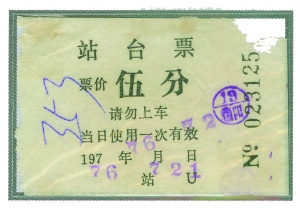 站台票
票价 伍分
请勿上车
当日使用一次有效
197 年 月 日
站 U
76 7 21
№ 023125
19